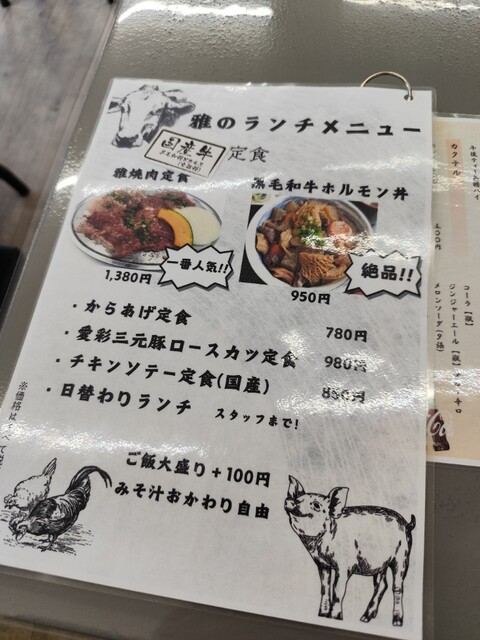 雅のランチメニュー
国産牛
定食
雅焼肉定食
黒毛和牛ホルモン丼
一番人気!!
絶品!!
1,380円
950円
・からあげ定食 780円
・愛彩三元豚ロースカツ定食 980円
・チキンソテー定食(国産) 850円
・日替わりランチ スタッフまで!
ご飯大盛り+100円
みそ汁おかわり自由
※価格は
カクテル
コーラ【瓶】
ジンジャーエール【瓶】
メロンソーダ